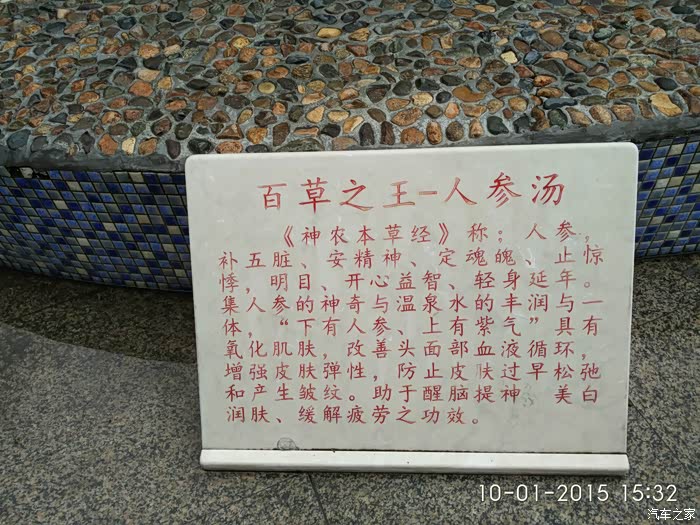 百草之王-人参汤
《神农本草经》称：人参，
补五脏、安精神、定魂魄、止惊
悸，明目、开心益智、轻身延年。
集人参的神奇与温泉水的丰润与一
体，“下有人参、上有紫气”具有
氧化肌肤，改善头面部血液循环，
增强皮肤弹性，防止皮肤过早松弛
和产生皱纹。助于醒脑提神 美白
润肤、缓解疲劳之功效。
10-01-2015 15:32
汽车之家